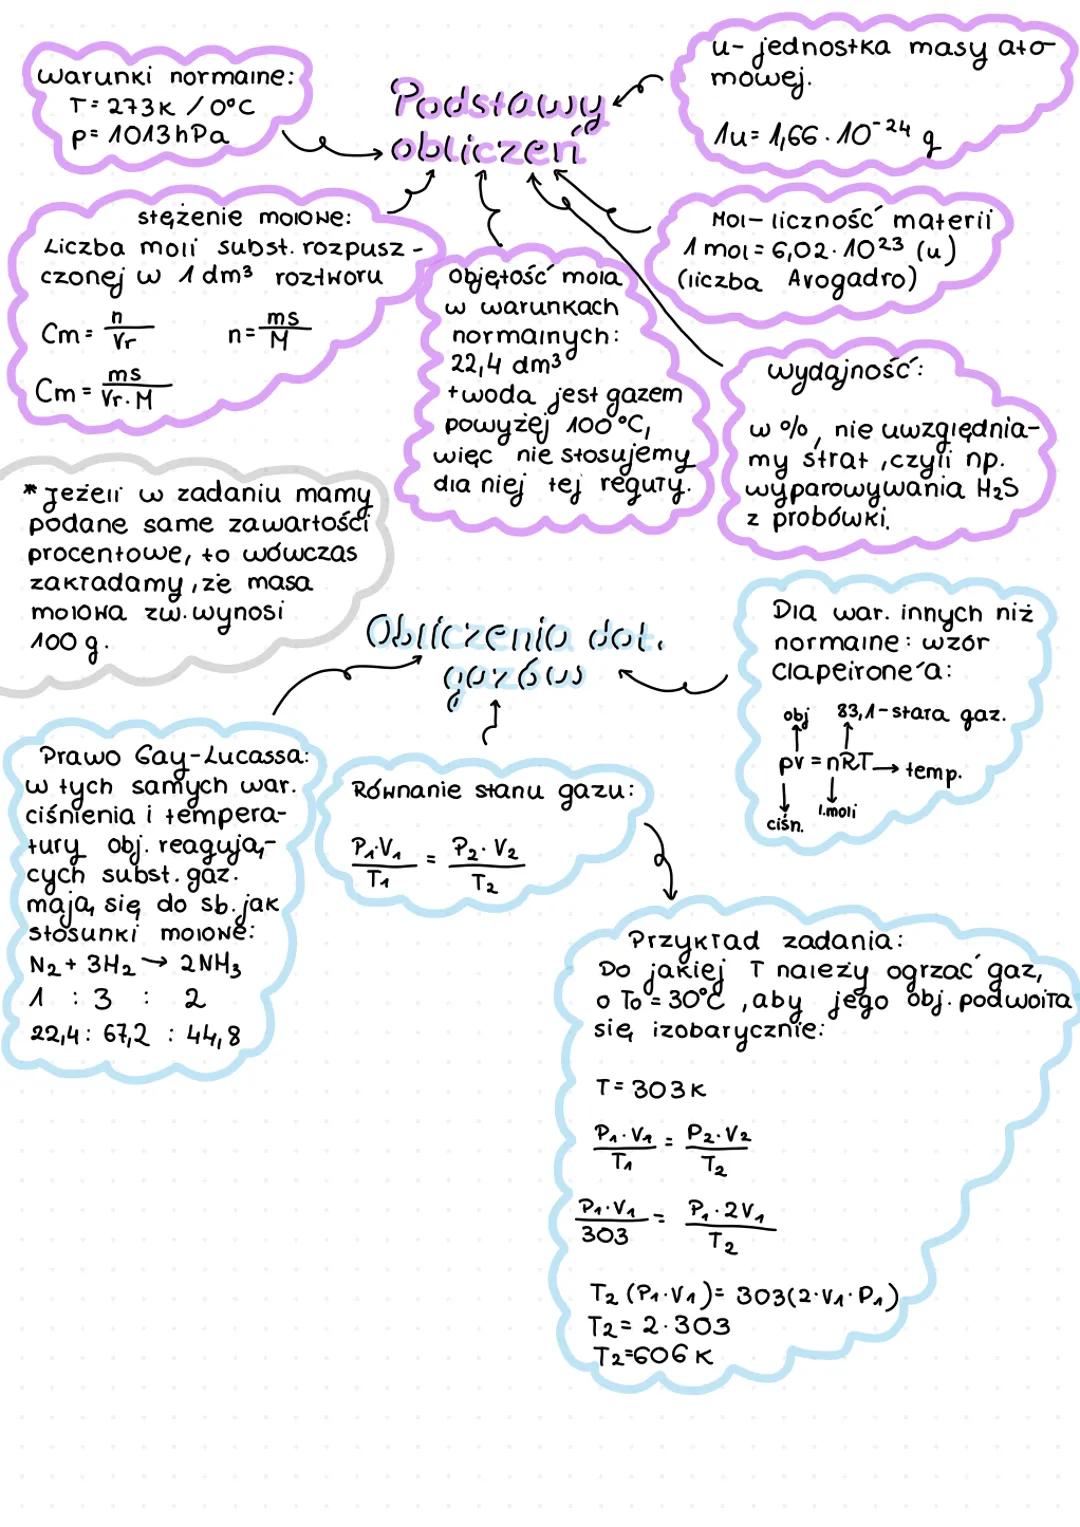 warunki normalne:
T= 273K /0°C
p= 1013hPa
Podstawy
obliczeń
u- jednostka masy ato-
mowej.
1u= 1,66 · 10⁻²⁴ g
stężenie molowe:
Liczba moli subst. rozpusz-
czonej w 1 dm³ roztworu
Cm = n/Vr    n= ms/M
Cm = ms/Vr·M
objętość mola
w warunkach
normalnych:
22,4 dm³
+woda jest gazem
powyżej 100°C,
więc nie stosujemy
dla niej tej reguły.
Mol- liczność materii
1 mol = 6,02·10²³ (u)
(liczba Avogadro)
wydajność:
w %, nie uwzględnia-
my strat, czyli np.
wyparowywania H₂S
z probówki.
* Jeżeli w zadaniu mamy
podane same zawartości
procentowe, to wówczas
zakładamy, że masa
molowa zw. wynosi
100 g.
Obliczenia dot.
gazów
Dla war. innych niż
normalne: wzór
Clapeirone'a:
obj  83,1-stała gaz.
pV = nRT → temp.
ciśn.  l.moli
Prawo Gay-Lucassa:
w tych samych war.
ciśnienia i tempera-
tury obj. reagują-
cych subst. gaz.
mają się do sb. jak
stosunki molowe:
N₂ + 3H₂ → 2NH₃
1 : 3 : 2
22,4 : 67,2 : 44,8
Równanie stanu gazu:
P₁·V₁/T₁ = P₂·V₂/T₂
Przykład zadania:
Do jakiej T należy ogrzać gaz,
o T₀ = 30°C, aby jego obj. podwoiła
się izobarycznie:
T= 303K
P₁·V₁/T₁ = P₂·V₂/T₂
P₁·V₁/303 = P₁·2V₁/T₂
T₂ (P₁·V₁)= 303(2·V₁·P₁)
T₂= 2·303
T₂=606 K